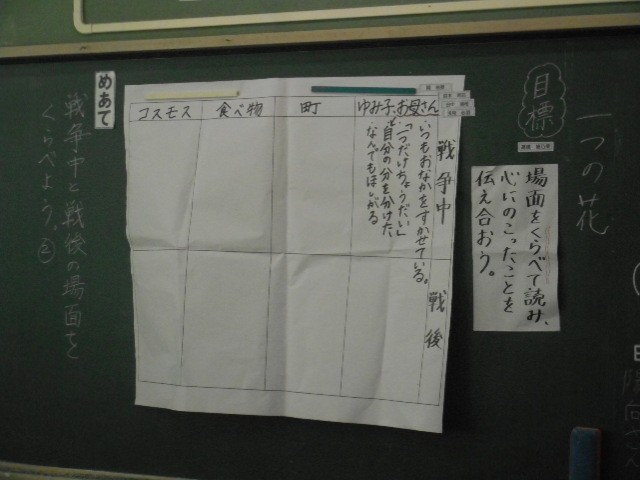 一つの花
目標
場面をくらべて読み、
心にのこったことを
伝え合おう。
戦争中
戦後
ゆみ子、お母さん
町
食べ物
コスモス
いつもおなかをすかせている。
「一つだけちょうだい」
自分の分を分けた。
なんでもほしがる
めあて
戦争中と戦後の場面を
くらべよう。②